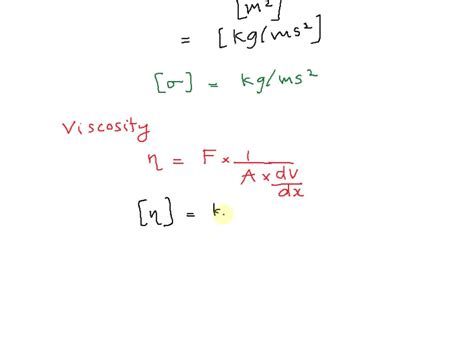 [m²]
= [kg/ms²]
[σ] = kg/ms²
Viscosity
η = F × 1 / A × dv/dx
[η] = k